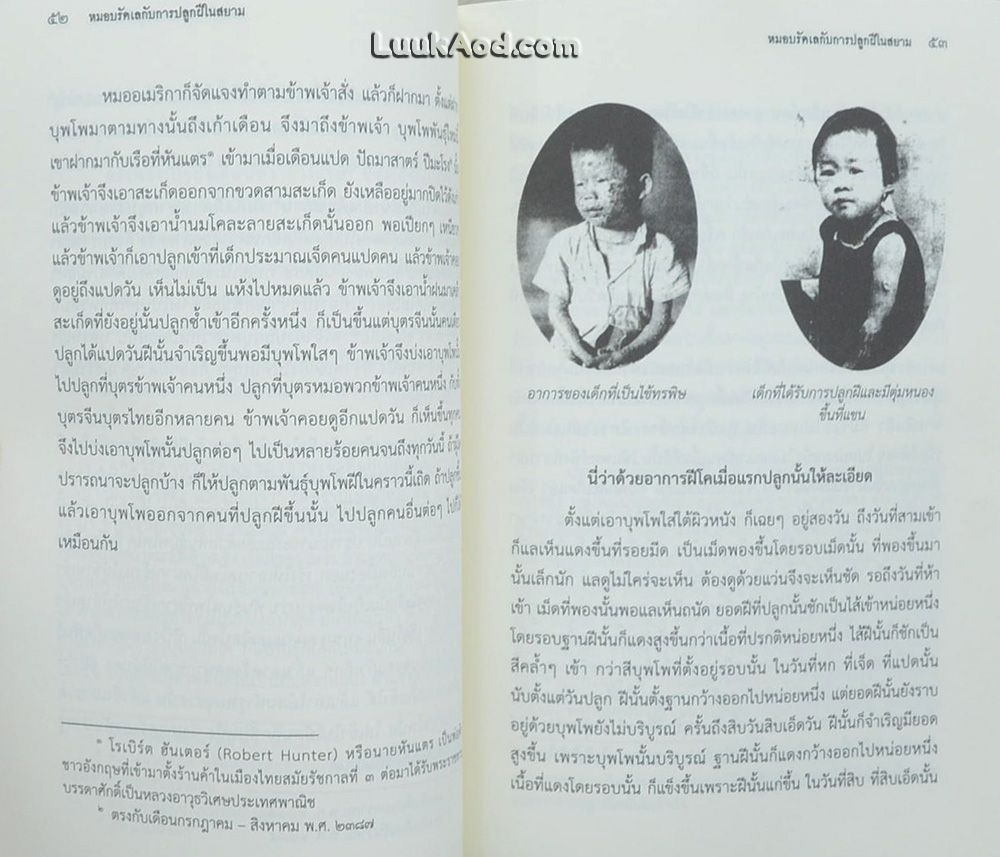 ๕๒ หมอบรัดเลกับการปลูกฝีในสยาม
LuukAod.com
หมออเมริกาก็จัดแจงทำตามข้าพเจ้าสั่ง แล้วก็ฝากมา
บุพโพมาตามทางนั้นถึงเก้าเดือน จึงมาถึงข้าพเจ้า
เขาฝากมากับเรือที่หันแตร๑ เข้ามาเมื่อเดือนแปด ปัถมาสาตร์
ข้าพเจ้าจึงเอาสะเก็ดออกจากขวดสามสะเก็ด ยังเหลืออยู่มากปิดไว้
แล้วข้าพเจ้าจึงเอาน้ำนมโคละลายสะเก็ดนั้นออก พอเปียกๆ
แล้วข้าพเจ้าก็เอาปลูกเข้าที่เด็กประมาณเจ็ดคนแปดคน
ดูอยู่ถึงแปดวัน เห็นไม่เป็น แห้งไปหมดแล้ว ข้าพเจ้าจึงเอาน้ำฝน
สะเก็ดที่ยังอยู่นั้นปลูกซ้ำเข้าอีกครั้งหนึ่ง ก็เป็นขึ้นแต่บุตรจีนนั้น
ปลูกได้แปดวันฝีนั้นจำเริญขึ้นพอมีบุพโพใสๆ ข้าพเจ้าจึงบ่งเอา
ไปปลูกที่บุตรข้าพเจ้าคนหนึ่ง ปลูกที่บุตรหมอพวกข้าพเจ้าคนหนึ่ง
บุตรจีนบุตรไทยอีกหลายคน ข้าพเจ้าคอยดูอีกแปดวัน ก็เห็นขึ้น
จึงไปบ่งเอาบุพโพนั้นปลูกต่อๆ ไปเป็นหลายร้อยคนจนถึงทุกวันนี้
ปรารถนาจะปลูกบ้าง ก็ให้ปลูกตามพันธุ์บุพโพฝีในคราวนี้เถิด
แล้วเอาบุพโพออกจากคนที่ปลูกฝีขึ้นนั้น ไปปลูกคนอื่นต่อๆ
เหมือนกัน
๑ โรเบิร์ต ฮันเตอร์ (Robert Hunter) หรือนายหันแตร
ชาวอังกฤษที่เข้ามาตั้งร้านค้าในเมืองไทยสมัยรัชกาลที่ ๓ ต่อมาได้รับ
บรรดาศักดิ์เป็นหลวงอาวุธวิเศษประเทศพาณิช
๒ ตรงกับเดือนกรกฎาคม – สิงหาคม พ.ศ. ๒๓๘๗
หมอบรัดเลกับการปลูกฝีในสยาม ๕๓
อาการของเด็กที่เป็นไข้ทรพิษ
เด็กที่ได้รับการปลูกฝีและมีตุ่มหนอง
ขึ้นที่แขน
นี่ว่าด้วยอาการฝีโคเมื่อแรกปลูกนั้นให้ละเอียด
ตั้งแต่เอาบุพโพใส่ใต้ผิวหนัง ก็เฉยๆ อยู่สองวัน ถึงวันที่สามเข้า
ก็แลเห็นแดงขึ้นที่รอยมีด เป็นเม็ดพองขึ้นโดยรอบเม็ดนั้น ที่พองขึ้นมา
นั้นเล็กนัก แลดูไม่ใคร่จะเห็น ต้องดูด้วยแว่นจึงจะเห็นชัด รอถึงวันที่ห้า
เข้า เม็ดที่พองนั้นพอแลเห็นถนัด ยอดฝีที่ปลูกนั้นชักเป็นไส้เข้าหน่อยหนึ่ง
โดยรอบฐานฝีนั้นก็แดงสูงขึ้นกว่าเนื้อที่ปรกติหน่อยหนึ่ง ไส้ฝีนั้นก็ชักเป็น
สีคล้ำๆ เข้า กว่าสีบุพโพที่ตั้งอยู่รอบนั้น ในวันที่หก ที่เจ็ด ที่แปดนั้น
นับตั้งแต่วันปลูก ฝีนั้นตั้งฐานกว้างออกไปหน่อยหนึ่ง แต่ยอดฝีนั้นยังราบ
อยู่ด้วยบุพโพยังไม่บริบูรณ์ ครั้นถึงสิบวันสิบเอ็ดวัน ฝีนั้นก็จำเริญมียอด
สูงขึ้น เพราะบุพโพนั้นบริบูรณ์ ฐานฝีนั้นก็แดงกว้างออกไปหน่อยหนึ่ง
เนื้อที่แดงโดยรอบนั้น ก็แข็งขึ้นเพราะฝีนั้นแก่ขึ้น ในวันที่สิบ ที่สิบเอ็ดนั้น